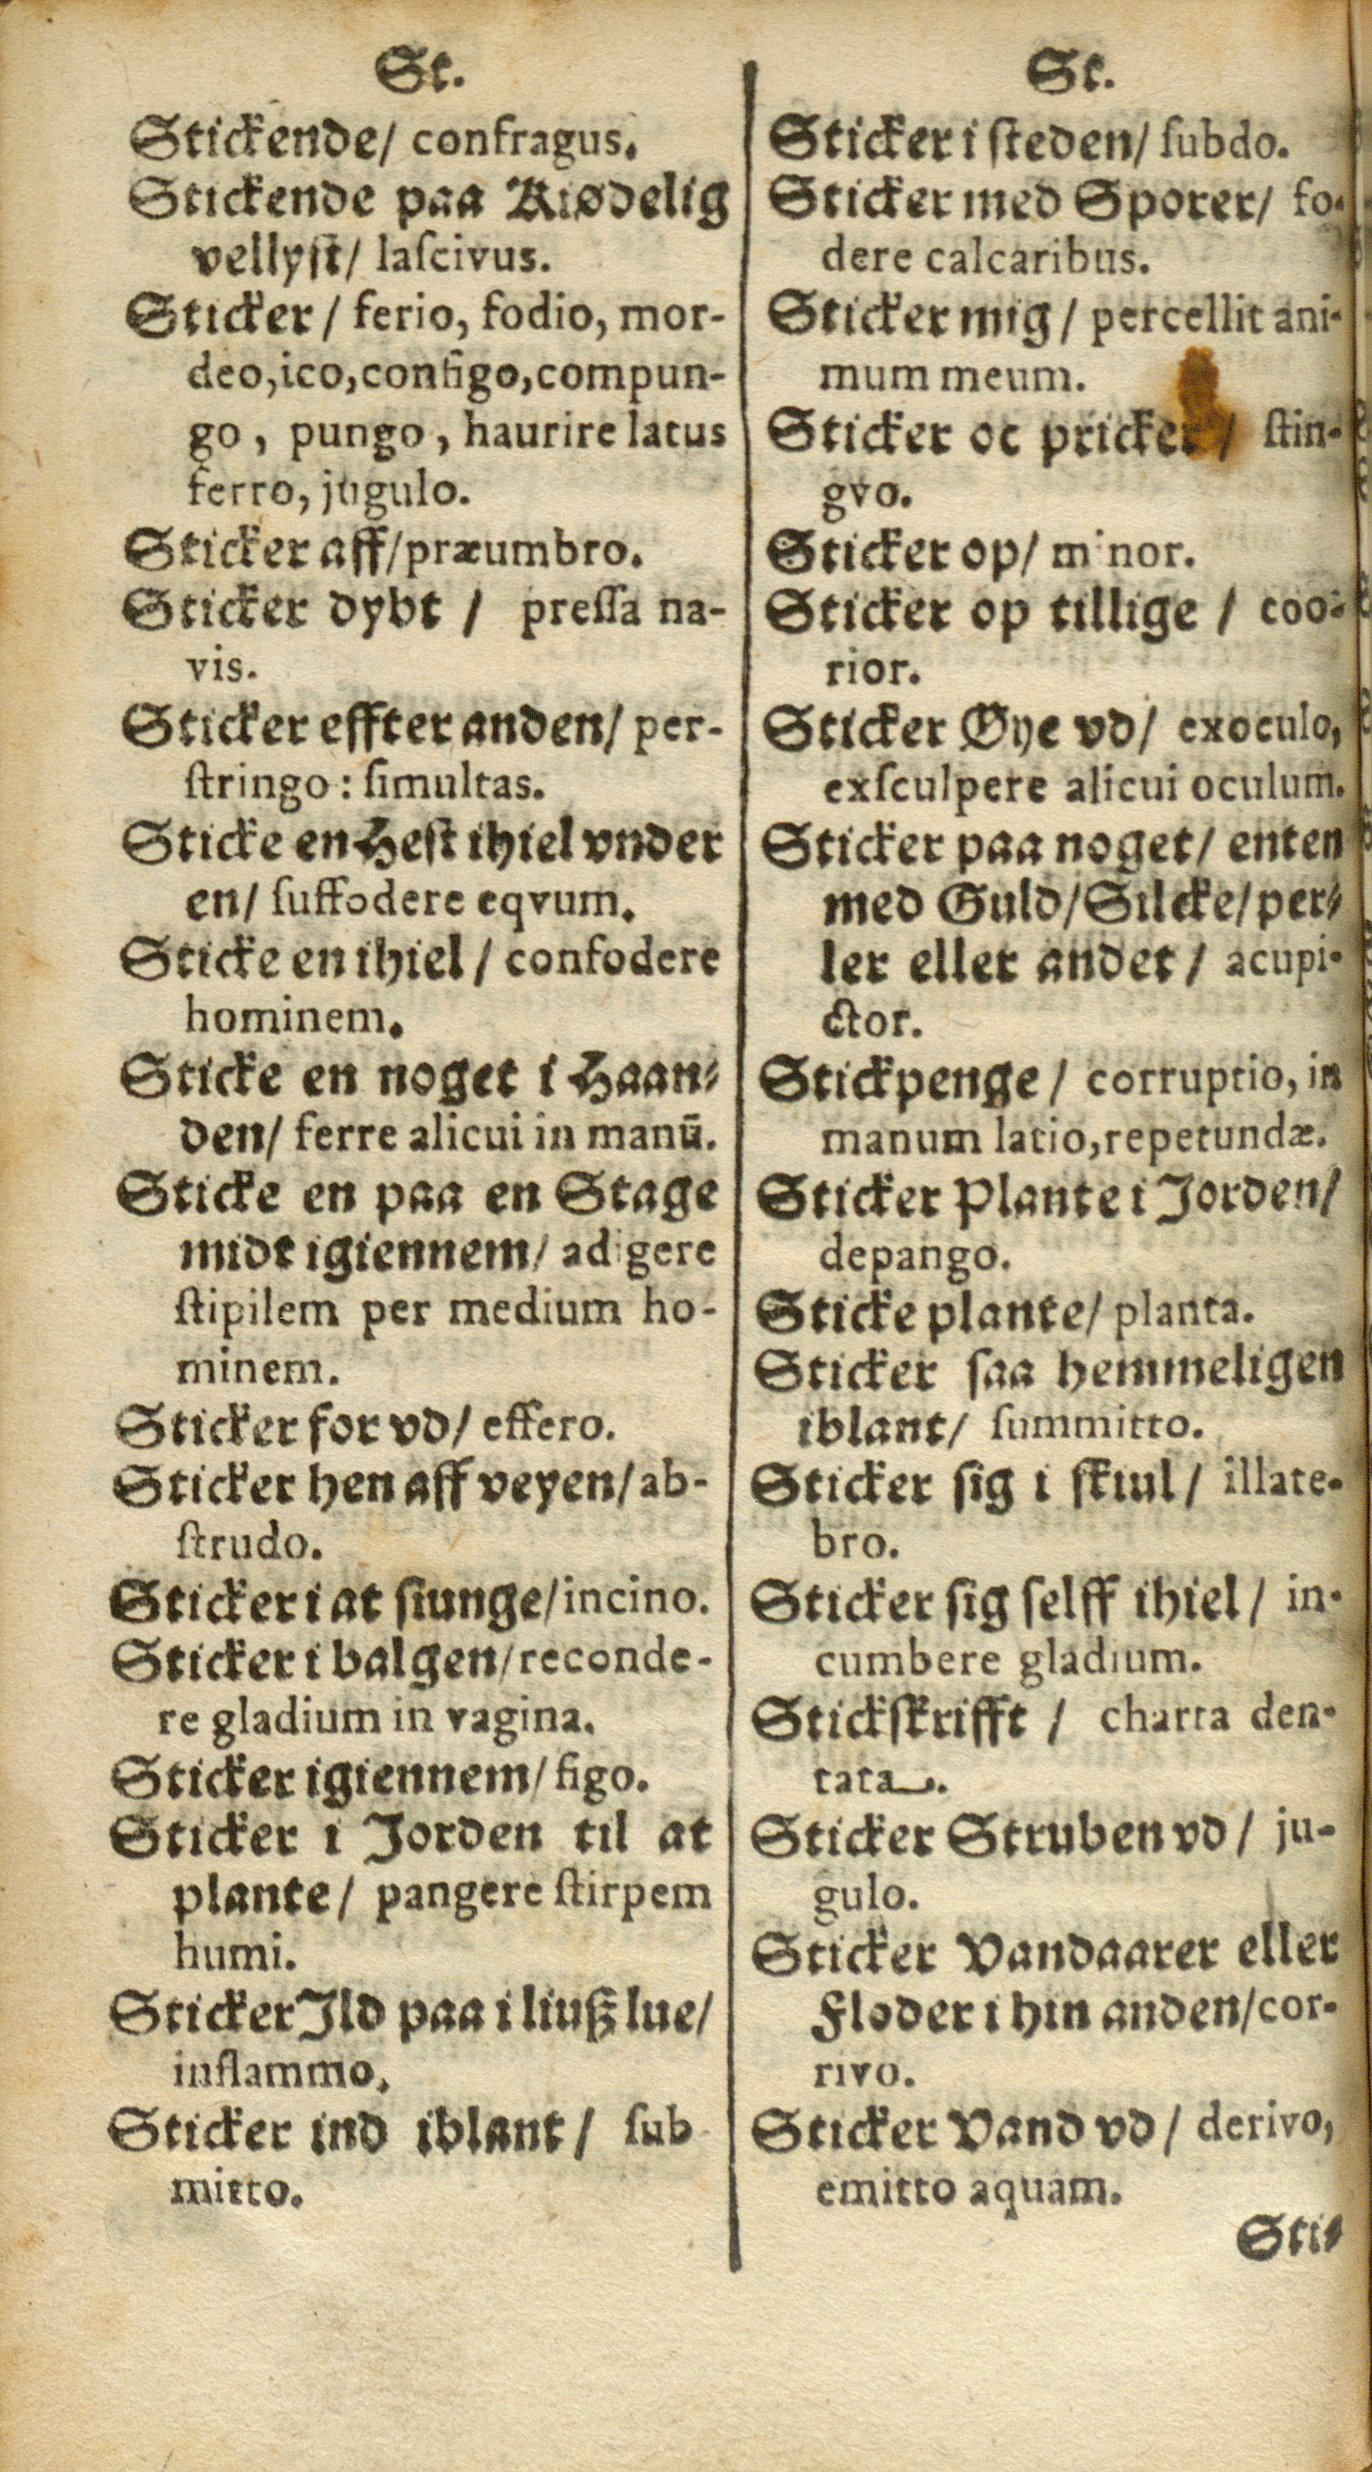 St.
Stickende/ confragus.
Stickende paa Kiødelig
vellyst/ laſcivus.
Sticker / ferio, fodio, mor-
deo, ico, configo, compun-
go, pungo, haurire latus
ferro, jugulo.
Sticker aff/ præumbro.
Sticker dybt / preſſa na-
vis.
Sticker effter anden/ per-
ſtringo: ſimultas.
Sticke en Heſt ihiel vnder
en/ ſuffodere eqvum.
Sticke en ihiel / confodere
hominem.
Sticke en noget i Haan-
den/ ferre alicui in manū.
Sticke en paa en Stage
midt igiennem/ adigere
ſtipilem per medium ho-
minem.
Sticker for vd/ effero.
Sticker hen aff veyen/ ab-
ſtrudo.
Sticker i at ſiunge/ incino.
Sticker i balgen/ reconde-
re gladium in vagina.
Sticker igiennem/ figo.
Sticker i Jorden til at
plante/ pangere ſtirpem
humi.
Sticker Ild paa i liuß lue/
inflammo.
Sticker ind iblant/ ſub
mitto.
St.
Sticker i ſteden/ ſubdo.
Sticker med Sporer/ fo-
dere calcaribus.
Sticker mig / percellit ani-
mum meum.
Sticker oc pricker / ſtin-
gvo.
Sticker op/ minor.
Sticker op tillige / coo-
rior.
Sticker Øye vd/ exoculo,
exſculpere alicui oculum.
Sticker paa noget/ enten
med Guld/ Silcke/ per-
ler eller andet / acupi-
ctor.
Stickpenge / corruptio, in
manum latio, repetundæ.
Sticker Plante i Jorden/
depango.
Sticke plante/ planta.
Sticker ſaa hemmeligen
iblant/ ſummitto.
Sticker ſig i ſkiul / illate-
bro.
Sticker ſig ſelff ihiel / in-
cumbere gladium.
Stickſkrifft / charta den-
tata.
Sticker Struben vd / ju-
gulo.
Sticker Vandaarer eller
Floder i hin anden/ cor-
rivo.
Sticker Vand vd / derivo,
emitto aquam.
Sti-